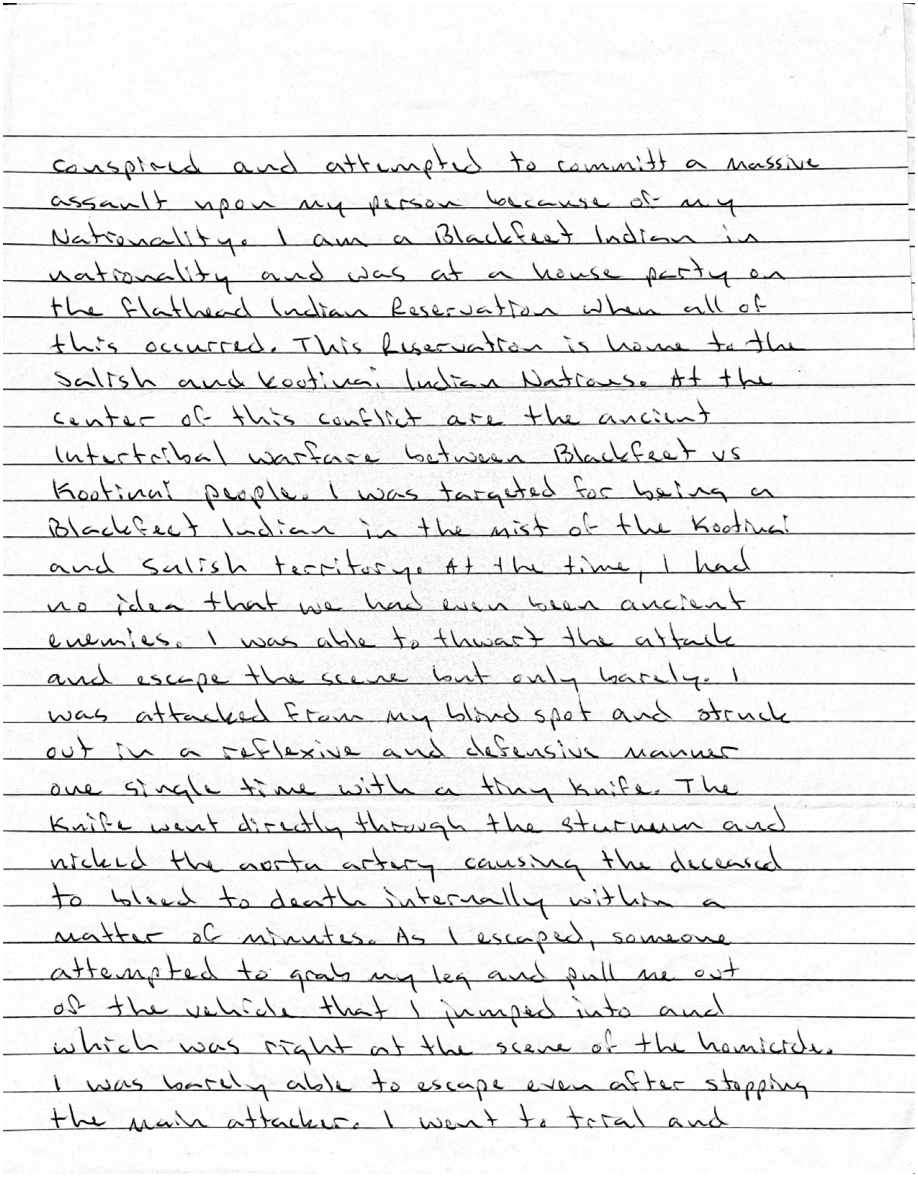 conspired and attempted to committ a massive
assault upon my person because of my
Nationality. I am a Blackfeet Indian in
nationality and was at a house party on
the flathead Indian Reservation when all of
this occurred. This Reservation is home to the
Salish and Kootinai Indian Nations. At the
center of this conflict are the ancient
Intertribal warfare between Blackfeet vs
Kootinai people. I was targeted for being a
Blackfeet Indian in the mist of the Kootinai
and Salish territory. At the time, I had
no idea that we had even been ancient
enemies. I was able to thwart the attack
and escape the scene but only barely. I
was attacked from my blind spot and struck
out in a reflexive and defensive manner
one single time with a tiny knife. The
Knife went directly through the sturnum and
nicked the aorta artery causing the deceased
to bleed to death internally within a
matter of minutes. As I escaped, someone
attempted to grab my leg and pull me out
of the vehicle that I jumped into and
which was right at the scene of the homicide.
I was barely able to escape even after stopping
the main attacker. I went to trial and